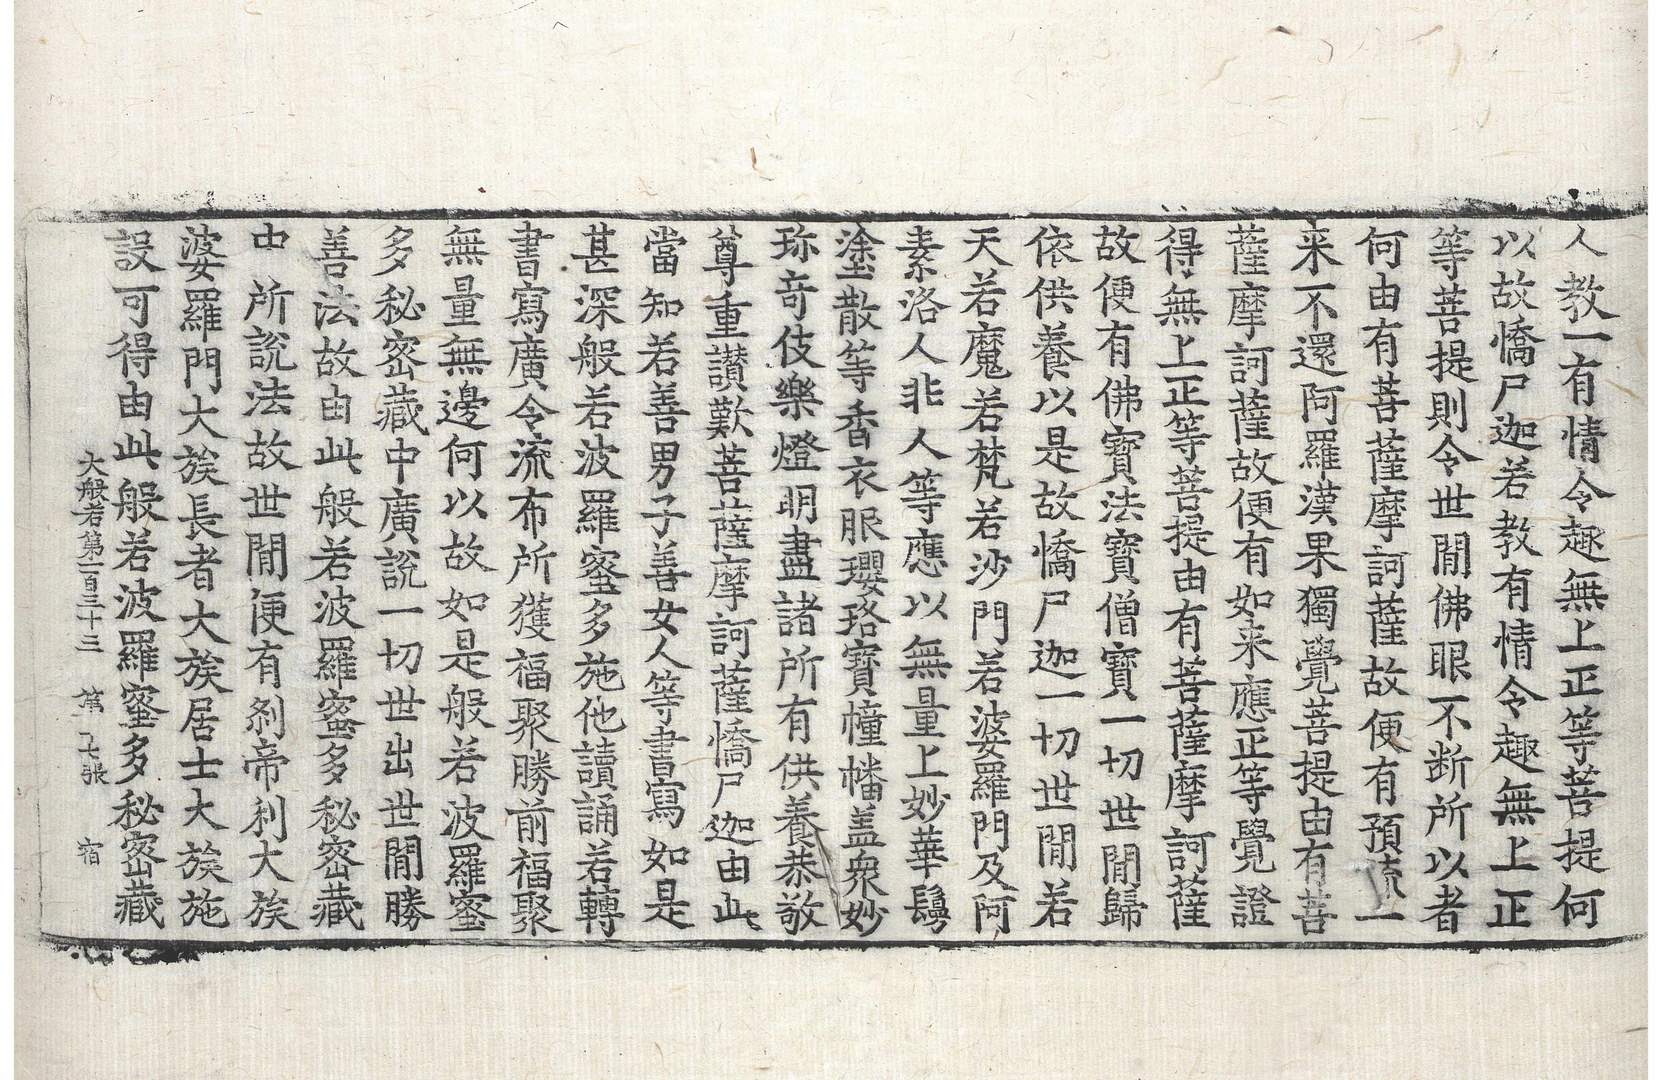 人教一有情令趣無上正等菩提何
以故憍尸迦若教有情令趣無上正
等菩提則令世間佛眼不断所以者
何由有菩薩摩訶薩故便有預流一
来不還阿羅漢果獨覺菩提由有菩
薩摩訶薩故便有如来應正等覺證
得無上正等菩提由有菩薩摩訶薩
故便有佛寶法寶僧寶一切世間歸
依供養以是故憍尸迦一切世間若
天若魔若梵若沙門若婆羅門及阿
素洛人非人等應以無量上妙華鬘
塗散等香衣服瓔珞寶幢幡盖衆妙
珎奇伎樂燈明盡諸所有供養恭敬
尊重讃歎菩薩摩訶薩憍尸迦由此
當知若善男子善女人等書寫如是
甚深般若波羅蜜多施他讀誦若轉
書寫廣令流布所獲福聚勝前福聚
無量無邊何以故如是般若波羅蜜
多秘密藏中廣說一切世出世間勝
善法故由此般若波羅蜜多秘密藏
中所說法故世間便有刹帝利大族
婆羅門大族長者大族居士大族施
設可得由此般若波羅蜜多秘密藏
大般若第一百三十三 第二十七張 宿